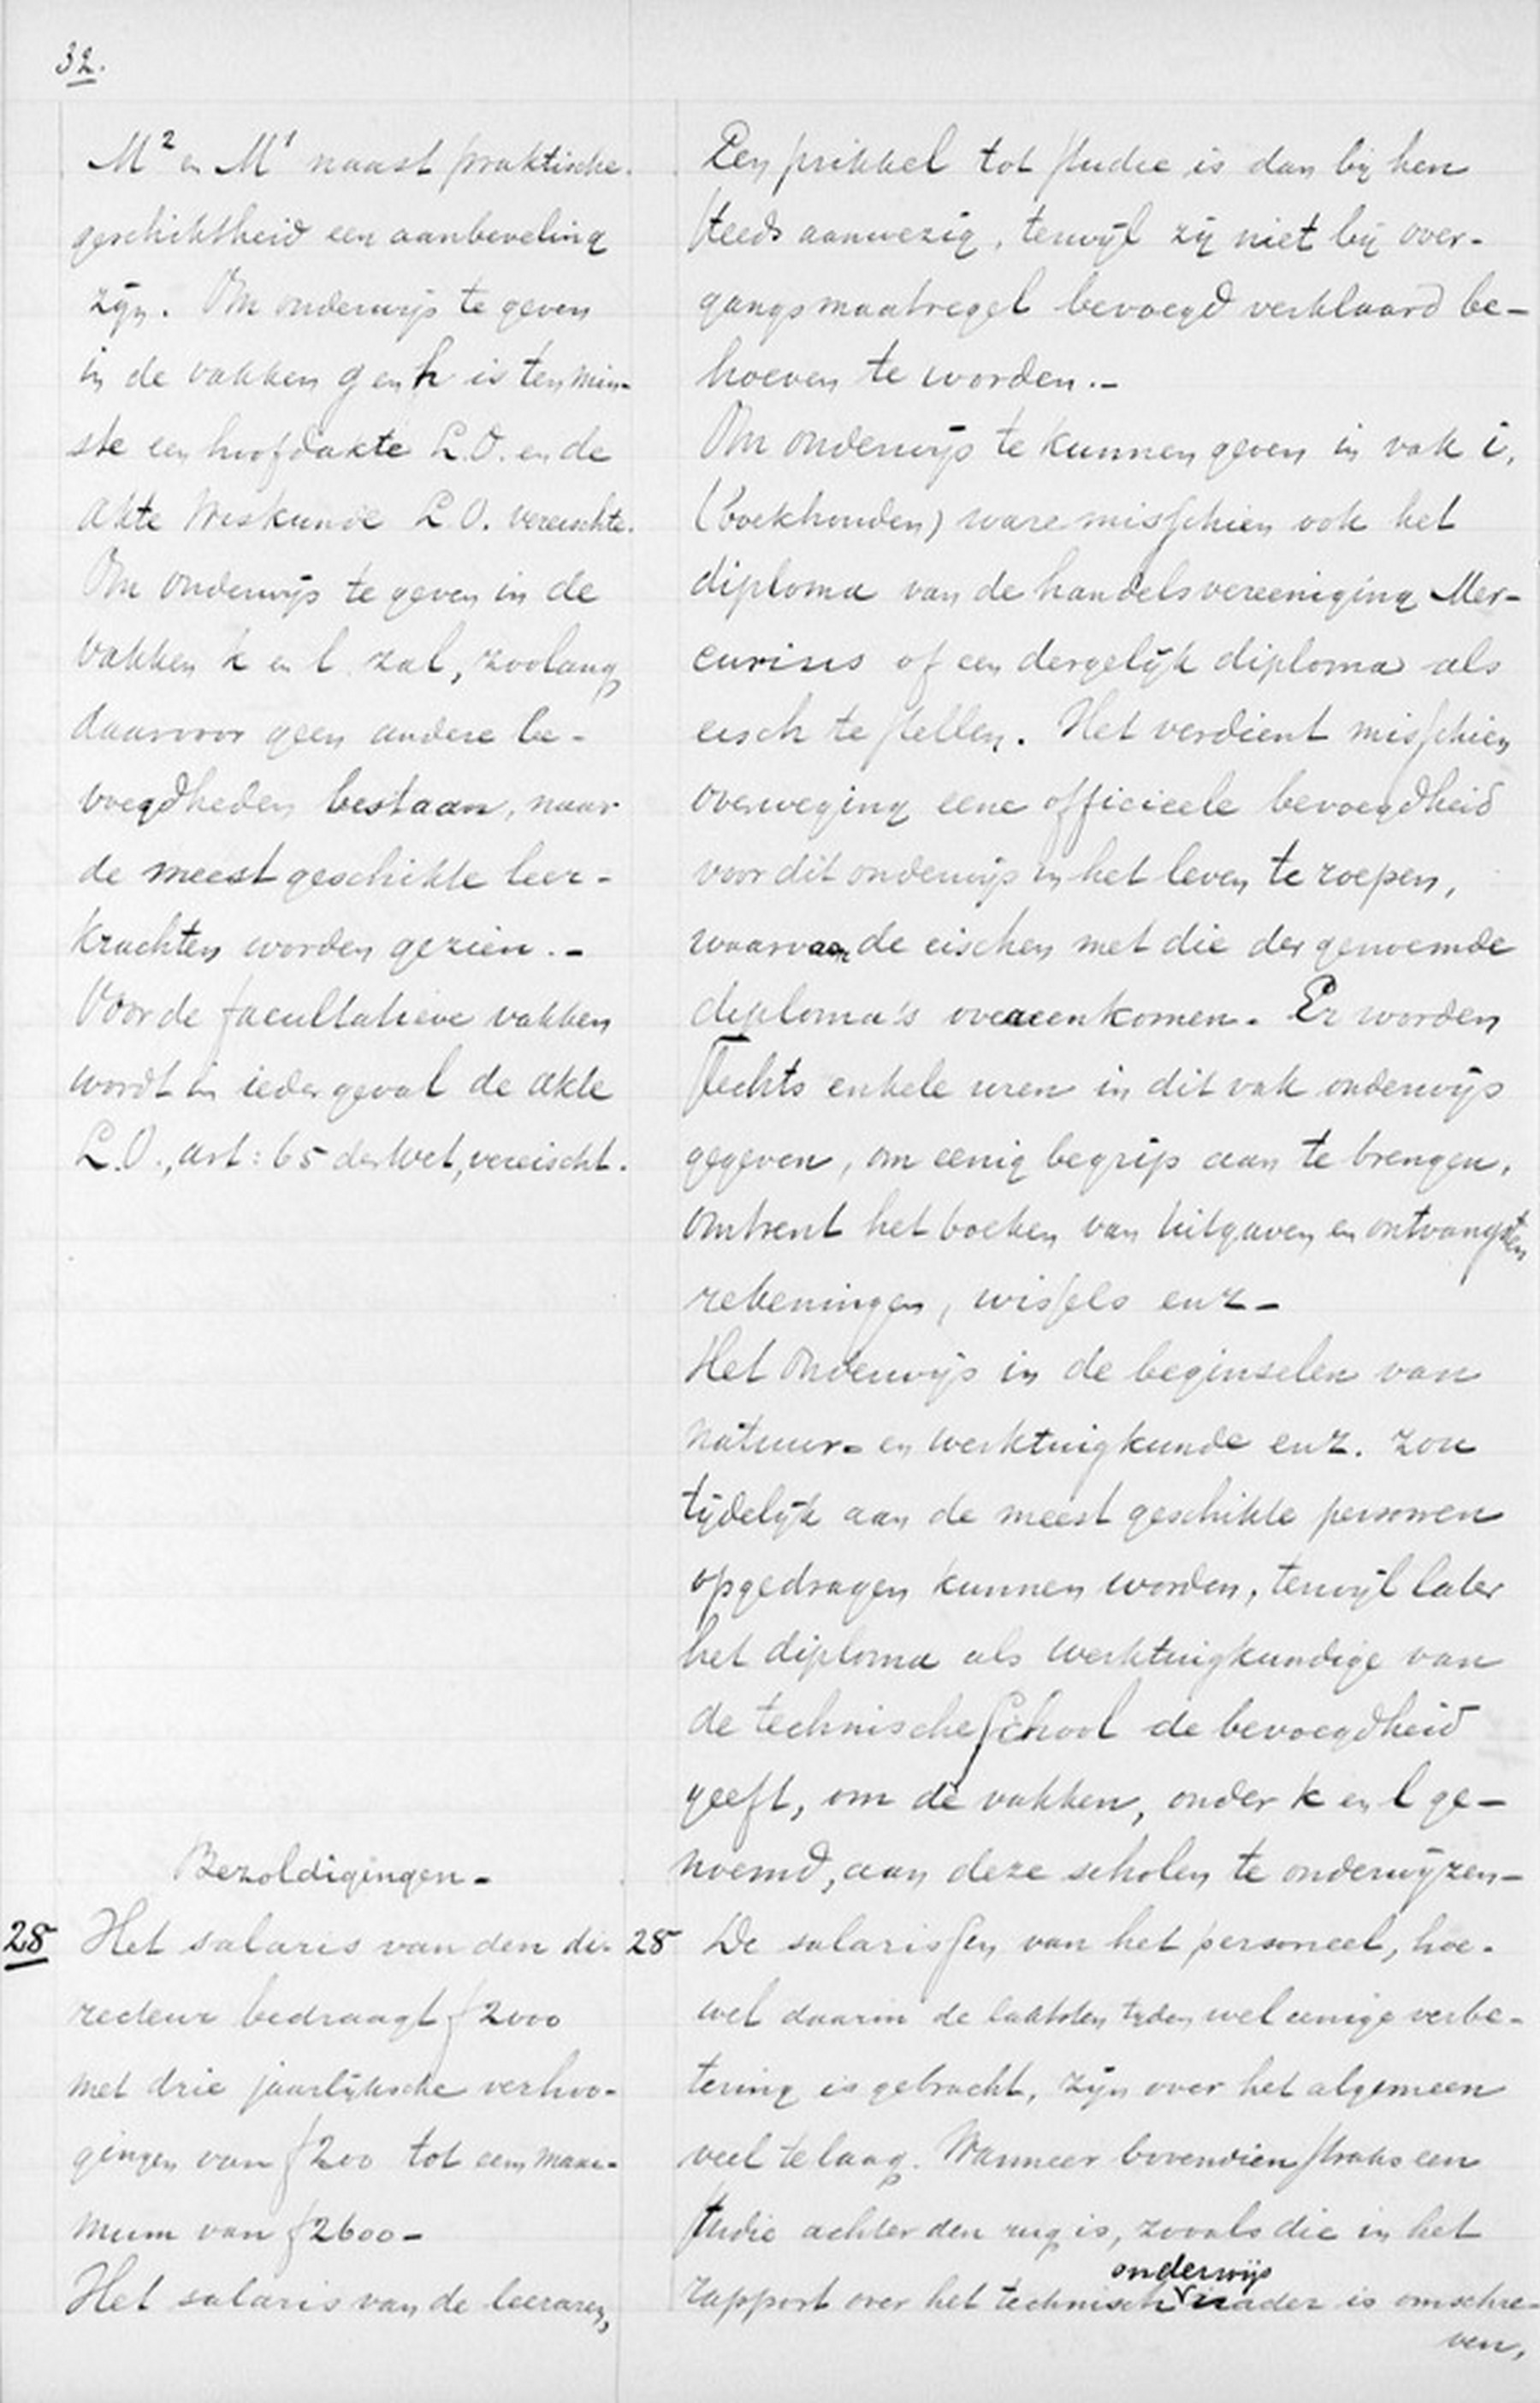 32.
M² en M¹ naast praktische
geschiktheid een aanbeveling
zijn. Om onderwijs te geven
in de vakken g en h is ten min-
ste een hoofdakte L.O. en de
akte Wiskunde L.O. vereischte.
Om onderwijs te geven in de
vakken k en l zal, zoolang
daarvoor geen andere be-
voegdheden bestaan, naar
de meest geschikte leer-
krachten worden gezien.-
Voor de facultatieve vakken
wordt in ieder geval de akte
L.O., art: 65 der Wet, vereischt.
Bezoldigingen-
28 Het salaris van den di-
recteur bedraagt f 2000
met drie jaarlijksche verhoo-
gingen van f 200 tot een maxi-
mum van f 2600-
Het salaris van de leeraren,
Een prikkel tot studie is dan bij hen
steeds aanwezig, terwijl zij niet bij over-
gangsmaatregel bevoegd verklaard be-
hoeven te worden.-
Om onderwijs te kunnen geven in vak i,
(boekhouden) ware misschien ook het
diploma van de handelsvereeniging Mer-
curius of een dergelijk diploma als
eisch te stellen. Het verdient misschien
overweging eene officieele bevoegdheid
voor dit onderwijs in het leven te roepen,
waarvan de eischen met die der genoemde
diploma's overeenkomen. Er worden
slechts enkele uren in dit vak onderwijs
gegeven, om eenig begrip aan te brengen,
omtrent het boeken van uitgaven en ontvangsten
rekeningen, wissels enz-
Het onderwijs in de beginselen van
natuur- en werktuigkunde enz. zou
tijdelijk aan de meest geschikte personen
opgedragen kunnen worden, terwijl later
het diploma als werktuigkundige van
de technische School de bevoegdheid
geeft, om de vakken, onder k en l ge-
noemd, aan deze scholen te onderwijzen-
28 De salarissen van het personeel, hoe-
wel daarin de laatsten tijden wel eenige verbe-
tering is gebracht, zijn over het algemeen
veel te laag. Wanneer bovendien straks een
studie achter den rug is, zooals die in het
onderwijs
rapport over het technisch nader is omschre-
ven,